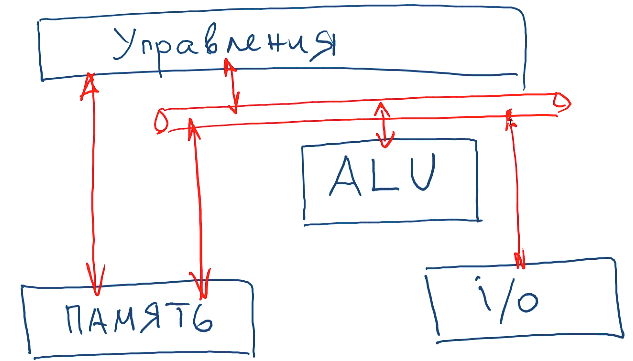 Управления
ALU
ПАМЯТЬ
i/o